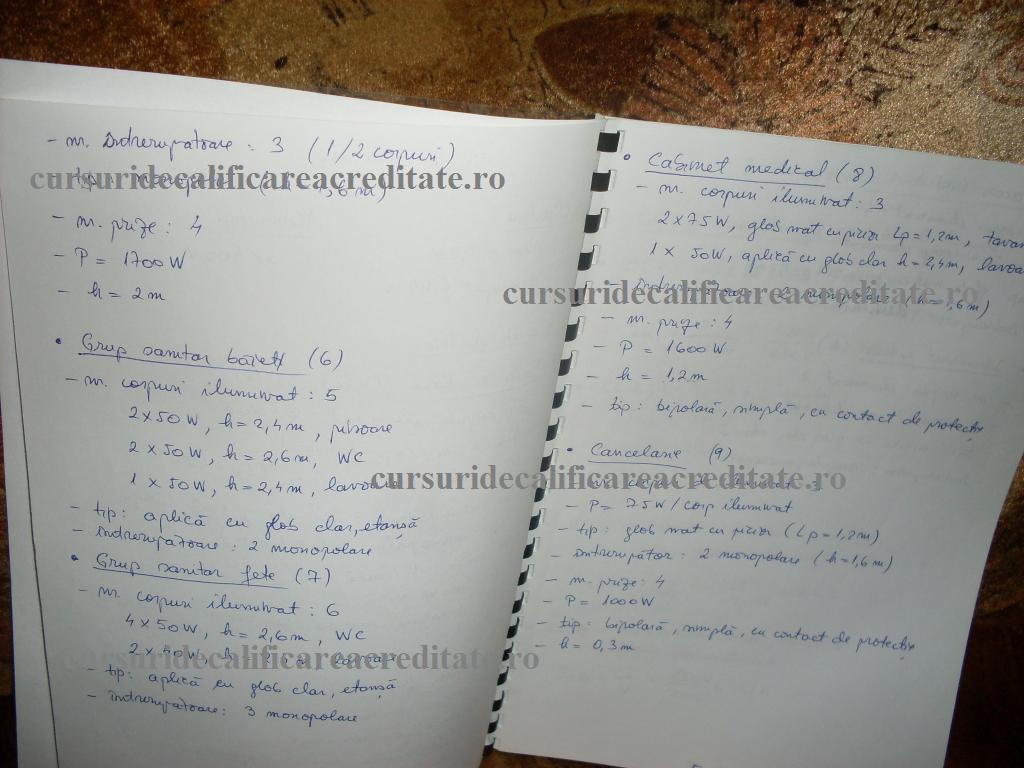 - nr. întrerupătoare : 3 (1/2 corpuri)
cursuridecalificareacreditate.ro
- nr. prize : 4
- P = 1700 W
- h = 2 m
• Grup sanitar băieți (6)
- nr. corpuri iluminat : 5
2 x 50 W, h = 2,4 m, pisoare
2 x 50 W, h = 2,6 m, WC
1 x 50 W, h = 2,4 m,
- tip : aplică cu glob clar, etanșă
- întrerupătoare : 2 monopolare
• Grup sanitar fete (7)
- nr. corpuri iluminat : 6
4 x 50 W, h = 2,6 m, WC
cursuridecalificareacreditate.ro
- tip : aplică cu glob clar, etanșă
- întrerupătoare : 3 monopolare
• Cabinet medical (8)
- nr. corpuri iluminat : 3
2 x 75 W, glob mat cu picior Lp = 1,2 m,
1 x 50 W, aplică cu glob clar h = 2,4 m,
cursuridecalificareacreditate.ro
- nr. prize : 4
- P = 1600 W
- h = 1,2 m
- tip : bipolară, simplă, cu contact de protecție
• Cancelarie (9)
cursuridecalificareacreditate.ro
- P = 75 W / corp iluminat
- tip : glob mat cu picior (Lp = 1,2 m)
- întrerupător : 2 monopolare (h = 1,6 m)
- nr. prize : 4
- P = 1000 W
- tip : bipolară, simplă, cu contact de protecție
- h = 0,3 m